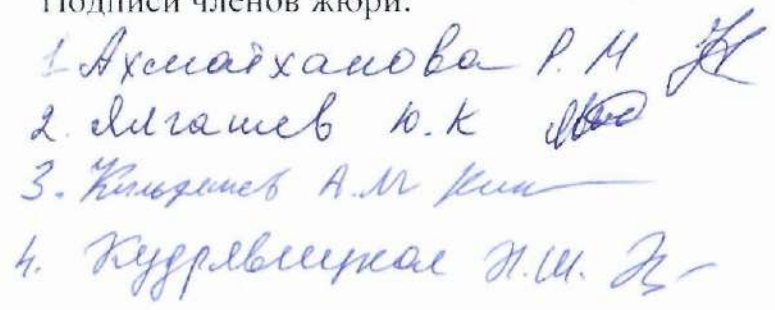 Подписи членов жюри:
1. Ахматханова Р. М
2. Ялгашев Ю. К
3. А. М
4. Кудрявицкая Н. Ш.